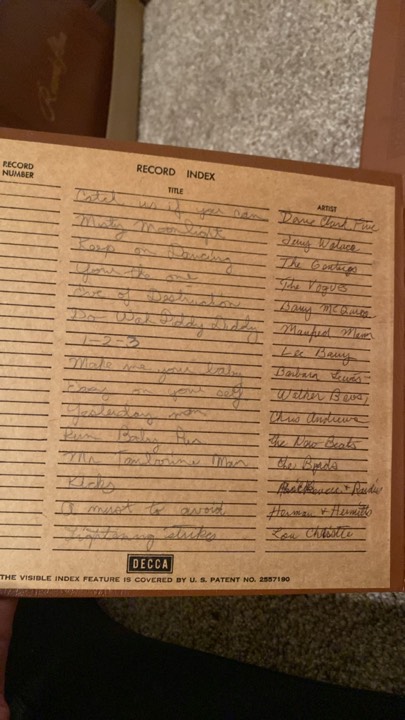 RECORD NUMBER RECORD INDEX
TITLE ARTIST
Catch us if you can Dave Clark Five
Misty Moonlight Jerry Wallace
Keep on Dancing The Gentrys
Your the one The Vogues
Eve of Destruction Barry McGuire
Do Wah Diddy Diddy Manfred Mann
1-2-3 Len Barry
Make me your baby Barbara Lewis
Easy on your self Walker Bros,
Yesterday man Chris Andrews
Run Baby Run the New Beats
Mr. Tambourine Man the Byrds
Kicks Paul Revere + Raiders
A must to avoid Herman + Hermits
Lightning Strikes Lou Christie
DECCA
THE VISIBLE INDEX FEATURE IS COVERED BY U. S. PATENT NO. 2557190